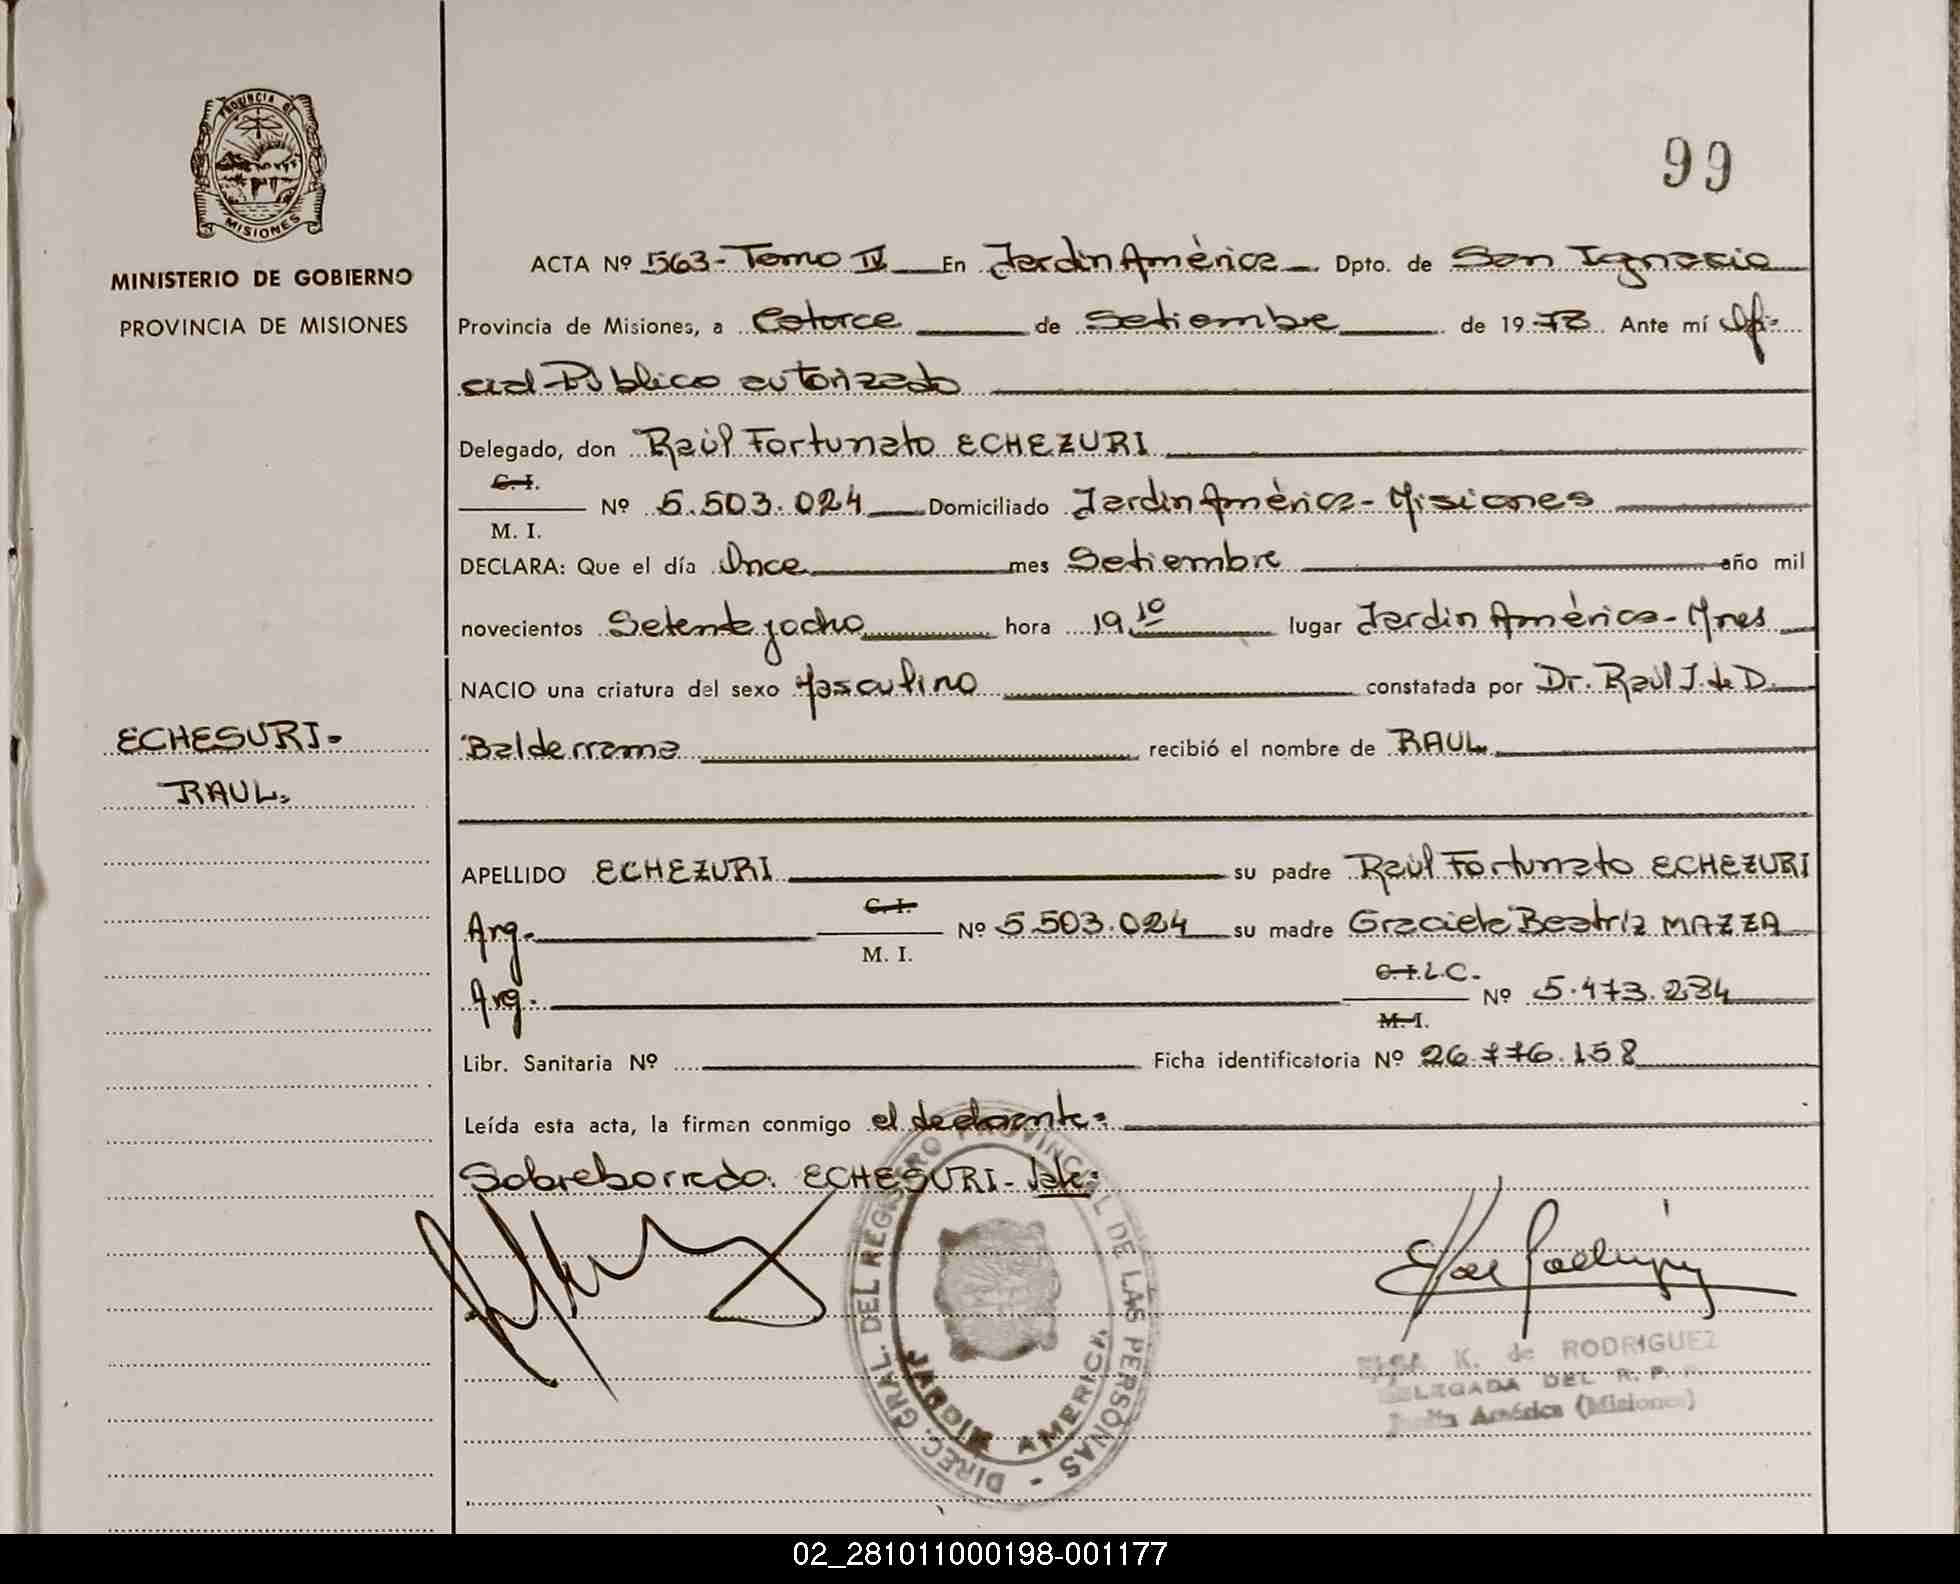 PROVINCIA DE
MISIONES
MINISTERIO DE GOBIERNO
PROVINCIA DE MISIONES
99
ACTA Nº 563-Tomo IV En Jardín América Dpto. de San Ignacio
Provincia de Misiones, a Catorce de Setiembre de 1978 Ante mí Ofi-
cial Público autorizado
Delegado, don Raúl Fortunato ECHEZURI
C. I.
Nº 5.503.024 Domiciliado Jardín América-Misiones
M. I.
DECLARA: Que el día Once mes Setiembre año mil
novecientos Setenta y ocho hora 19,10 lugar Jardín América-Mnes
NACIO una criatura del sexo Masculino constatada por Dr. Raúl J. de D.
ECHESURI-
Balderrama recibió el nombre de RAUL
RAUL.
APELLIDO ECHEZURI su padre Raúl Fortunato ECHEZURI
Arg. C. I. Nº 5.503.024 su madre Graciela Beatriz MAZZA
M. I.
Arg. C. I. L.C. Nº 5.473.234
M. I.
Libr. Sanitaria Nº Ficha identificatoria Nº 26.776.158
Leída esta acta, la firman conmigo el declarante.
Sobreborrado: ECHESURI- Vale:
DIREC. GRAL. DEL REGISTRO PROVINCIAL DE LAS PERSONAS -
JARDIN AMERICA
ELSA K. de RODRIGUEZ
DELEGADA DEL R. P. P.
Jardín América (Misiones)
02_281011000198-001177